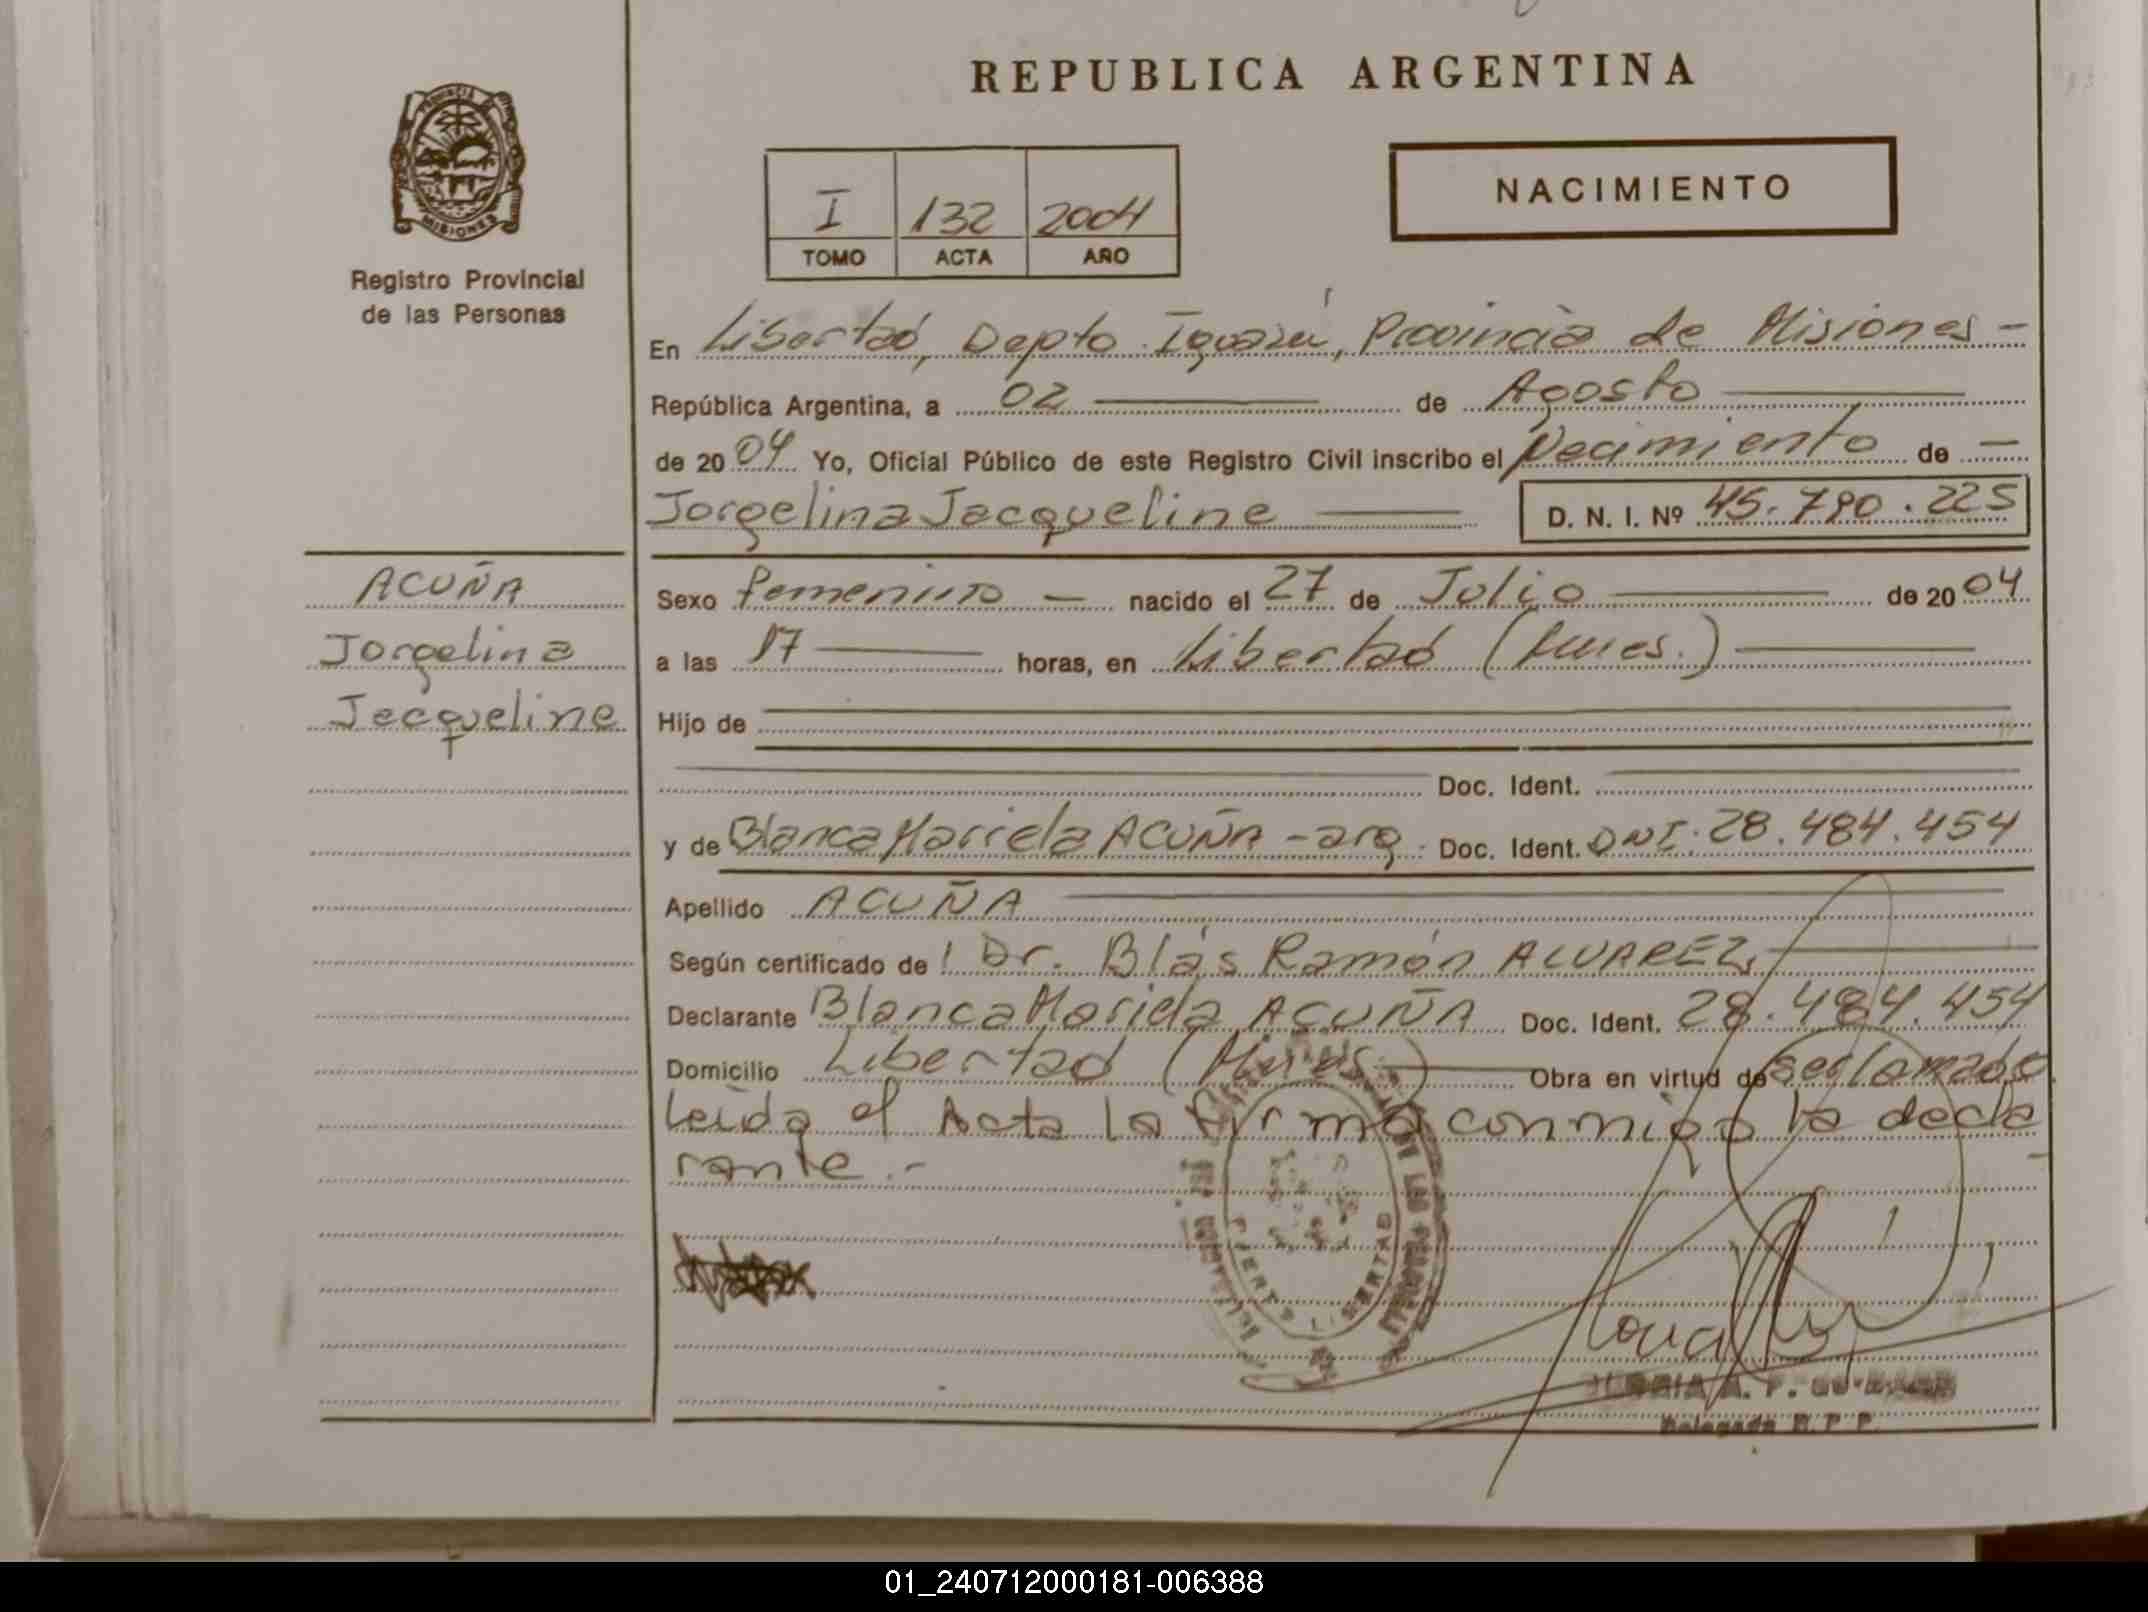 REPUBLICA ARGENTINA
PROVINCIA DE
MISIONES
Registro Provincial
de las Personas
I 132 2004
TOMO ACTA AÑO
NACIMIENTO
En Libertad, Depto Iguazú, Provincia de Misiones -
República Argentina, a 02 de Agosto
de 2004 Yo, Oficial Público de este Registro Civil inscribo el Nacimiento de
Jorgelina Jacqueline D. N. I. Nº 45.790.225
ACUÑA
Jorgelina
Jacqueline
Sexo femenino - nacido el 27 de Julio de 2004
a las 17 horas, en Libertad (Mnes.)
Hijo de
Doc. Ident.
y de Blanca Mariela ACUÑA - arg. Doc. Ident. DNI. 28.484.454
Apellido ACUÑA
Según certificado de: Dr. Blás Ramón ALVAREZ
Declarante Blanca Mariela ACUÑA Doc. Ident. 28.484.454
Domicilio Libertad (Mnes.) Obra en virtud de
Leída el Acta la firma conmigo la decla
rante.-
PUERTO LIBERTAD
DE LAS PERSONAS
Delegada R.P.P.
01_240712000181-006388